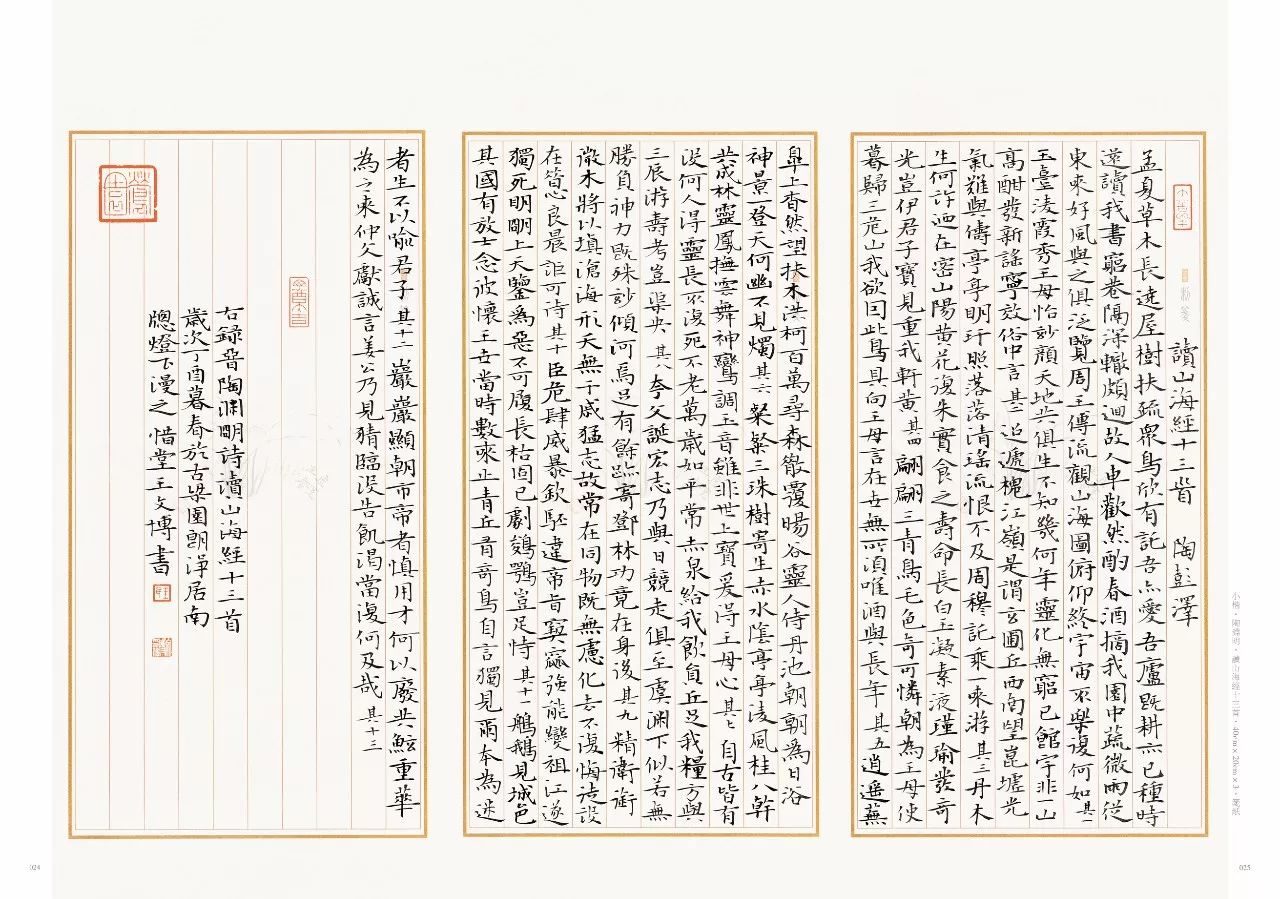 讀山海經十三首 陶彭澤
孟夏草木長遶屋樹扶疏衆鳥欣有託吾亦愛吾廬既耕亦已種時
還讀我書窮巷隔深轍頗迴故人車歡然酌春酒摘我園中蔬微雨從
東來好風與之俱泛覽周王傳流觀山海圖俯仰終宇宙不樂復何如其一
玉臺淩霞秀王母怡妙顏天地共俱生不知幾何年靈化無窮已館宇非一山
高酣發新謠寧效俗中言其二迢遞槐江嶺是謂玄圃丘西南望崑墟光
氣難與儔亭亭明玕照落落清瑤流恨不及周穆託乘一來游其三丹木
生何許迺在密山陽黃花復朱實食之壽命長白玉凝素液瑾瑜發奇
光豈伊君子寶見重我軒黃其四翩翩三青鳥毛色奇可憐朝為王母使
暮歸三危山我欲因此鳥具向王母言在世無所須唯酒與長年其五逍遙蕪
皋上杳然望扶木洪柯百萬尋森散覆暘谷靈人侍丹池朝朝為日浴
神景一登天何幽不見燭其六粲粲三珠樹寄生赤水陰亭亭淩風桂八幹
共成林靈鳳撫雲舞神鸞調玉音雖非世上寶爰得王母心其七自古皆有
沒何人得靈長不復死不老萬歲如平常赤泉給我飲員丘足我糧方與
三辰游壽考豈渠央其八夸父誕宏志乃與日競走俱至虞淵下似若無
勝負神力既殊妙傾河焉足有餘跡寄鄧林功竟在身後其九精衛銜
微木將以填滄海形天無干戚猛志故常在同物既無慮化去不復悔徒設
在昔心良晨詎可待其十臣危肆威暴欽駓違帝旨窫窳強能變祖江遂
獨死明明上天鑒為惡不可履長枯固已劇鵕鶚豈足恃其十一鵃鵝見城邑
其國有放士念彼懷王世當時數來止青丘有奇鳥自言獨見爾本為迷
者生不以喻君子其十二巖巖顯朝市帝者慎用才何以廢共鯀重華
為之來仲父獻誠言姜公乃見猜臨沒告飢渴當復何及哉其十三
右錄晉陶淵明詩讀山海經十三首
歲次丁酉暮春於古梁園朗淨居南
牕燈下漫之惜堂王文博書
小楷・陶淵明・讀山海經十三首・40cm×20cm×3・箋紙
024
025